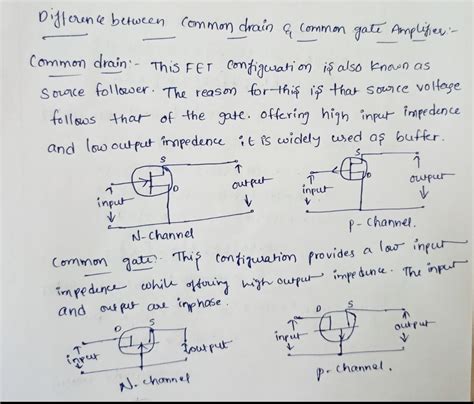 Difference between Common drain & Common gate Amplifier:-
Common drain:- This FET configuration is also known as
Source follower. The reason for this is that source voltage
follows that of the gate. offering high input impedence
and low output impedence it is widely used as buffer.
S
D
input
output
N-channel
S
D
input
output
P-channel.
Common gate. This configuration provides a low input
impedence while offering high output impedance. The input
and output are inphase.
D
S
input
output
N-channel
D
S
input
output
P-channel.